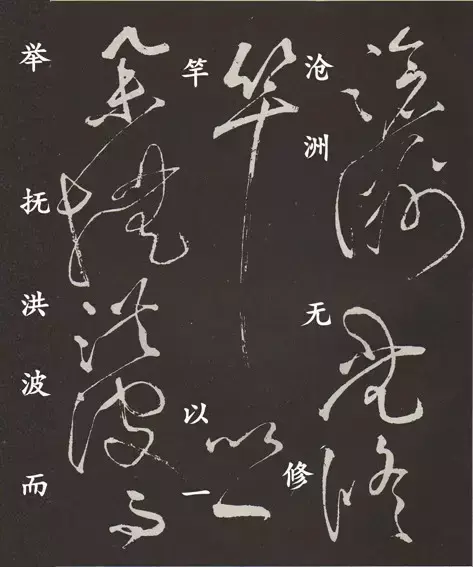 沧洲无修
竿以一
举抚洪波而